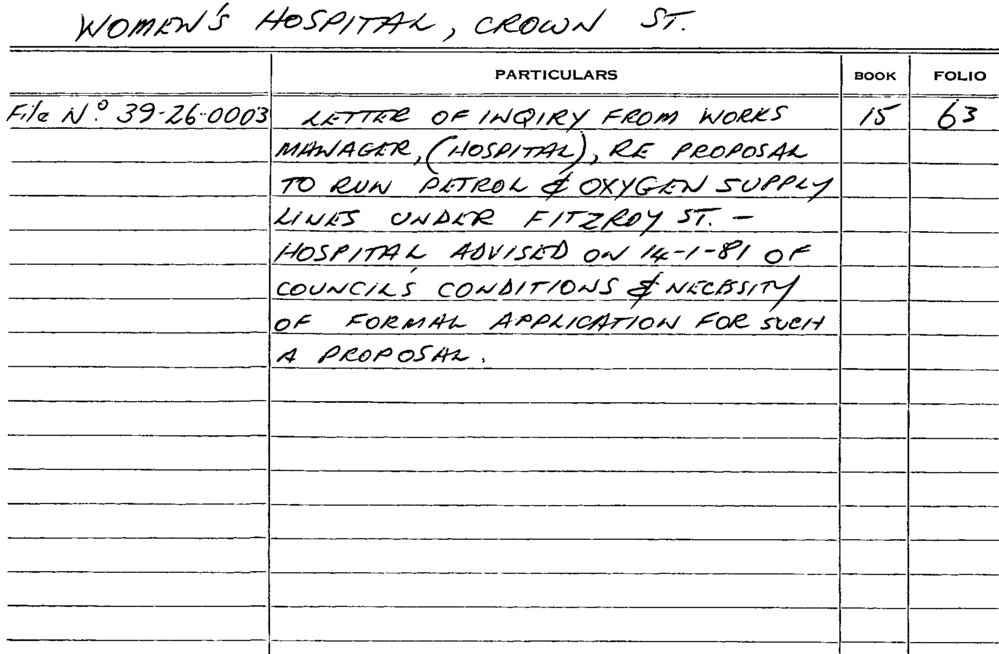 WOMEN'S HOSPITAL, CROWN ST.
PARTICULARS BOOK FOLIO
File No. 39-26-0003 LETTER OF INQIRY FROM WORKS 15 63
MANAGER, (HOSPITAL), RE PROPOSAL
TO RUN PETROL & OXYGEN SUPPLY
LINES UNDER FITZROY ST. -
HOSPITAL ADVISED ON 14-1-81 OF
COUNCIL'S CONDITIONS & NECESSITY
OF FORMAL APPLICATION FOR SUCH
A PROPOSAL.